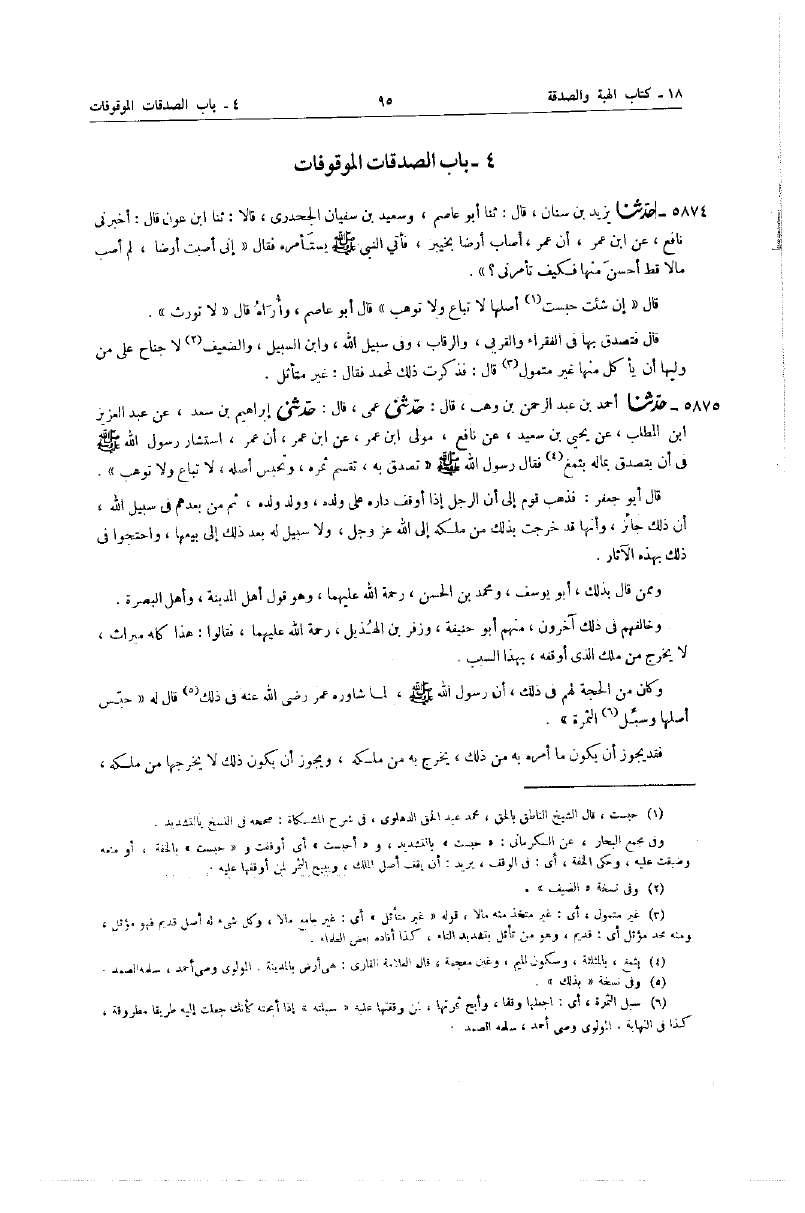 ١٨ - كتاب الهبة والصدقة ٩٥ ٤ - باب الصدقات الموقوفات
٤ - باب الصدقات الموقوفات
٥٨٧٤ - حدثنا يزيد بن سنان ، قال : ثنا أبو عاصم ، وسعيد بن سفيان الجحدرى ، قالا : ثنا ابن عون قال : أخبرنى
نافع ، عن ابن عمر ، أن عمر ، أصاب أرضا بخيبر ، فأتي النبي ﷺ يستأمره فقال « إنى أصبت أرضا ، لم أصب
مالا قط أحسن منها فكيف تأمرنى ؟ » .
قال « إن شئت حبست (١) أصلها لا تباع ولا توهب » قال أبو عاصم ، وأُرَاهُ قال « لا تورث » .
قال فتصدق بها فى الفقراء والقربى ، والرقاب ، وفى سبيل الله ، وابن السبيل ، والضعيف (٢) لا جناح على من
وليها أن يأكل منها غير متمول (٣) قال : فذكرت ذلك لمحمد فقال : غير متأثل .
٥٨٧٥ - حدثنا أحمد بن عبد الرحمن بن وهب ، قال : حدثنى عمى ، قال : حدثنى إبراهيم بن سعد ، عن عبد العزيز
ابن المطلب ، عن يحيى بن سعيد ، عن نافع ، مولى ابن عمر ، عن ابن عمر ، أن عمر ، استشار رسول الله ﷺ
فى أن يتصدق بماله بثمغ (٤) فقال رسول الله ﷺ « تصدق به ، تقسم ثمره ، وتحبس أصله ، لا تباع ولا توهب » .
قال أبو جعفر : فذهب قوم إلى أن الرجل إذا أوقف داره على ولده ، وولد ولده ، ثم من بعدهم فى سبيل الله ،
أن ذلك جائز ، وأنها قد خرجت بذلك من ملكه إلى الله عز وجل ، ولا سبيل له بعد ذلك إلى بيعها ، واحتجوا فى
ذلك بهذه الآثار .
وممن قال بذلك ، أبو يوسف ، ومحمد بن الحسن ، رحمة الله عليهما ، وهو قول أهل المدينة ، وأهل البصرة .
وخالفهم فى ذلك آخرون ، منهم أبو حنيفة ، وزفر بن الهُذيل ، رحمة الله عليهما ، فقالوا : هذا كله ميراث ،
لا يخرج من ملك الذى أوقفه ، بهذا السبب .
وكان من الحجة لهم فى ذلك ، أن رسول الله ﷺ ، لما شاوره عمر رضى الله عنه فى ذلك (٥) قال له « حبّس
أصلها وسبّل (٦) الثمرة » .
فقد يجوز أن يكون ما أمره به من ذلك ، يخرج به من ملكه ، ويجوز أن يكون ذلك لا يخرجها من ملكه ،
(١) حبست ، قال الشيخ الناطق بالحق ، محمد عبد الحق الدهلوى ، فى شرح المشكاة : صححه فى النسخ بالتشديد .
وفى مجمع البحار ، عن الكرمانى : « حبست » بالتشديد ، و « أحبست » أى أوقفت و « حبست » بالخفة ، أو منعه
وضيقت عليه ، وحكى الخفة ، أى : فى الوقف ، يريد : أن يقف أصل الملك ، ويبيح الثمر لمن أوقفها عليه .
(٢) وفى نسخة « الضيف » .
(٣) غير متمول ، أى : غير متخذ منه مالا ، قوله « غير متأثل » أى : غير جامع مالا ، وكل شىء له أصل قديم فهو مؤثل ،
ومنه مجد مؤثل أى : قديم ، وهو من تأثل بتشديد الثاء ، كذا أفاده بعض العلماء .
(٤) بثمغ ، بالمثلثة ، وسكون الميم ، وغين معجمة ، قال العلامة القارى : هى أرض بالمدينة . المولوى وصى أحمد ، سلمه الصمد .
(٥) وفى نسخة « بذلك » .
(٦) سبل الثمرة ، أى : اجعلها وقفا ، وأبح ثمرتها ، لمن وقفتها عليه « سبلته » إذا أبحته كأنك جعلت إليه طريقا مطروقة ،
كذا فى النهاية . المولوى وصى أحمد ، سلمه الصمد .